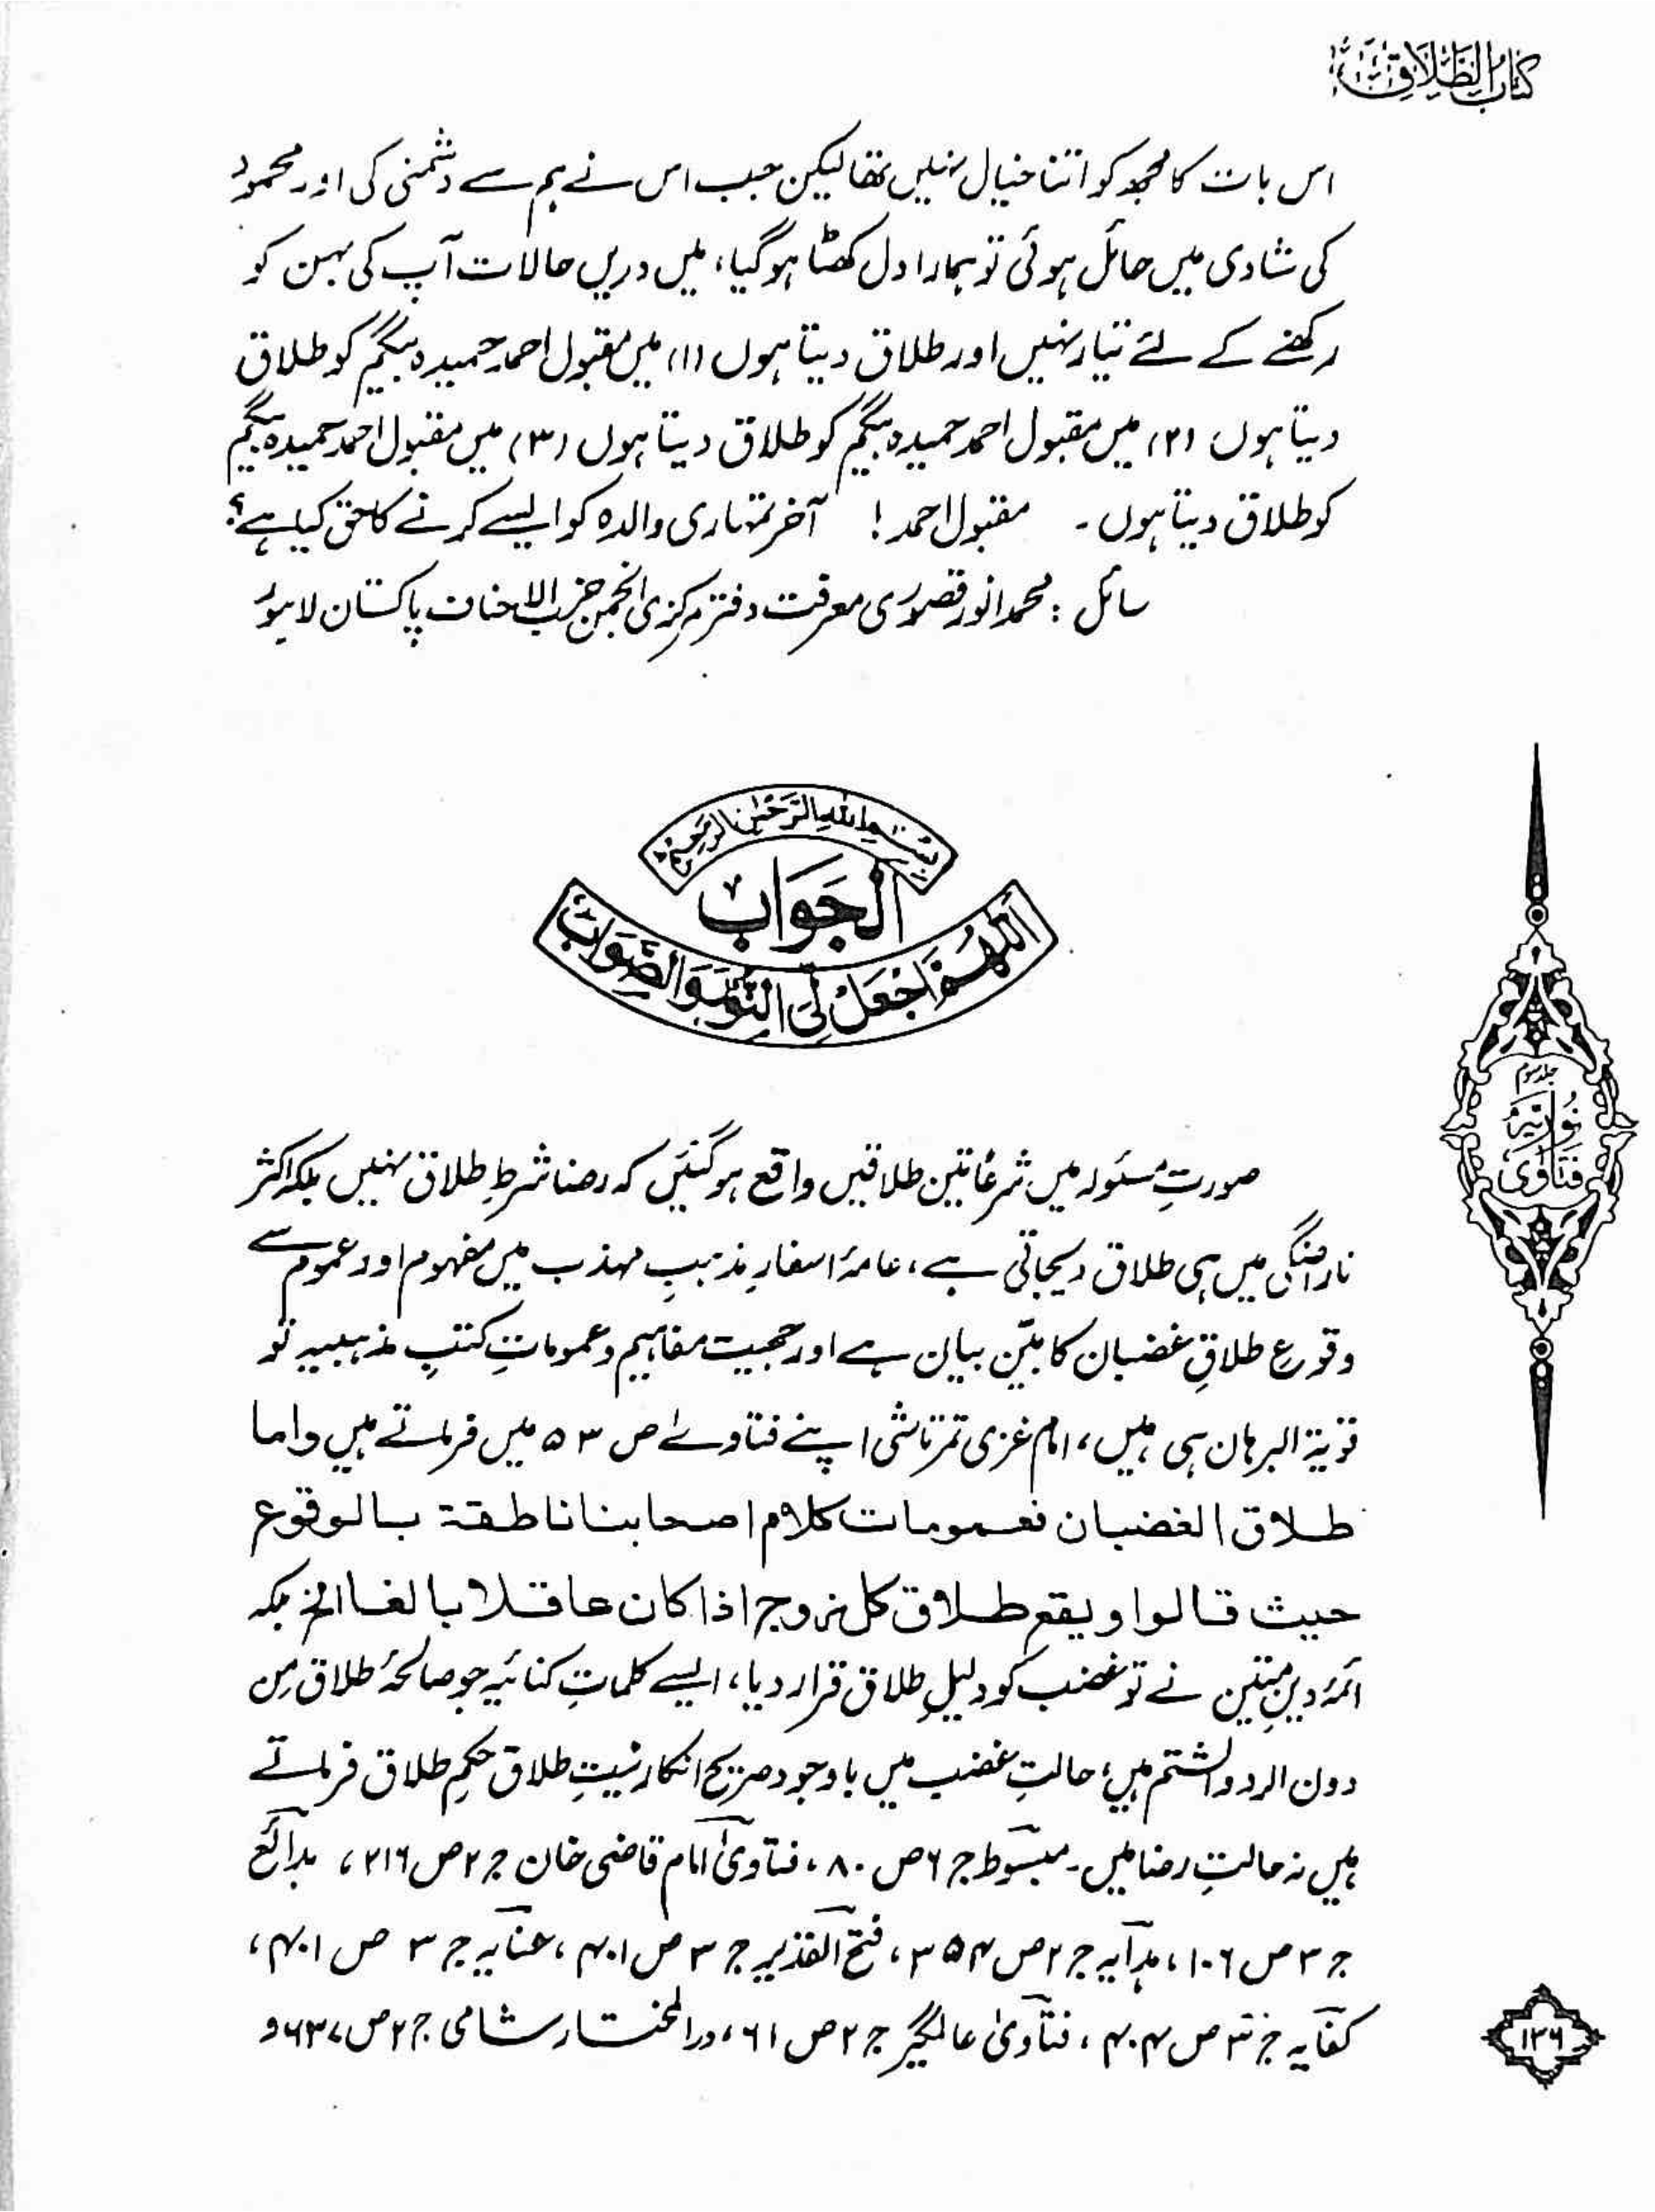 کتاب الطلاق
اس بات کا مجھ کو اتنا خیال نہیں تھا لیکن جب اس نے ہم سے دشمنی کی اور محمود
کی شادی میں حائل ہوئی تو ہمارا دل کھٹا ہوگیا، میں دریں حالات آپ کی بہن کو
رکھنے کے لئے تیار نہیں اور طلاق دیتا ہوں (۱) میں مقبول احمد حمیدہ بیگم کو طلاق
دیتا ہوں (۲) میں مقبول احمد حمیدہ بیگم کو طلاق دیتا ہوں (۳) میں مقبول احمد حمیدہ بیگم
کو طلاق دیتا ہوں۔ مقبول احمد! آخر تمہاری والدہ کو ایسے کرنے کا حق کیا ہے؟
سائل : محمد انور قصوری معرفت دفتر مرکزی انجمن حزب الاحناف پاکستان لاہور
بِسْمِ اللهِ الرَّحْمٰنِ الرَّحِیْمِ
الْجَوَابُ
اَللّٰهُمَّ اجْعَلْ لِیَ النُّوْرَ وَالصَّوَابَ
صورتِ مسئولہ میں شرعًا تین طلاقیں واقع ہوگئیں کہ رضا شرطِ طلاق نہیں بلکہ اکثر
ناراضگی میں ہی طلاق دیجاتی ہے، عامۂ اسفارِ مذہبِ مہذب میں مفہوم اور عموم سے
وقوعِ طلاقِ غضبان کا بیّن بیان ہے اور حجیت مفاہیم و عموماتِ کتبِ مذہبیہ تو
قویۃ البرہان ہی ہیں، امام غزی تمرتاشی اپنے فتاوے ص ۵۳ میں فرماتے ہیں واما
طلاق الغضبان فعمومات کلام اصحابنا ناطقۃ بالوقوع
حیث قالوا و یقع طلاق کل زوج اذا کان عاقلا بالغا الخ بلکہ
ائمۂ دینِ متین نے تو غضب کو دلیلِ طلاق قرار دیا، ایسے کلماتِ کنائیہ جو صالحۂ طلاق مِن
دون الرد والشتم ہیں، حالتِ غضب میں باوجود صریح انکار نیتِ طلاق حکمِ طلاق فرماتے
ہیں نہ حالتِ رضا میں۔ مبسوط ج ۶ ص ۸۰، فتاویٰ امام قاضی خان ج ۲ ص ۲۱۶، بدائع
ج ۳ ص ۱۰۶، ہدایہ ج ۲ ص ۳۵۴، فتح القدیر ج ۳ ص ۴۰۱، عنایہ ج ۳ ص ۴۰۱،
کفایہ ج ۳ ص ۴۰۴، فتاویٰ عالمگیر ج ۲ ص ۶۱، درالمختار شامی ج ۲ ص ۶۳۷ و
جلد سوم
فتاویٰ نوریہ
۱۳۶